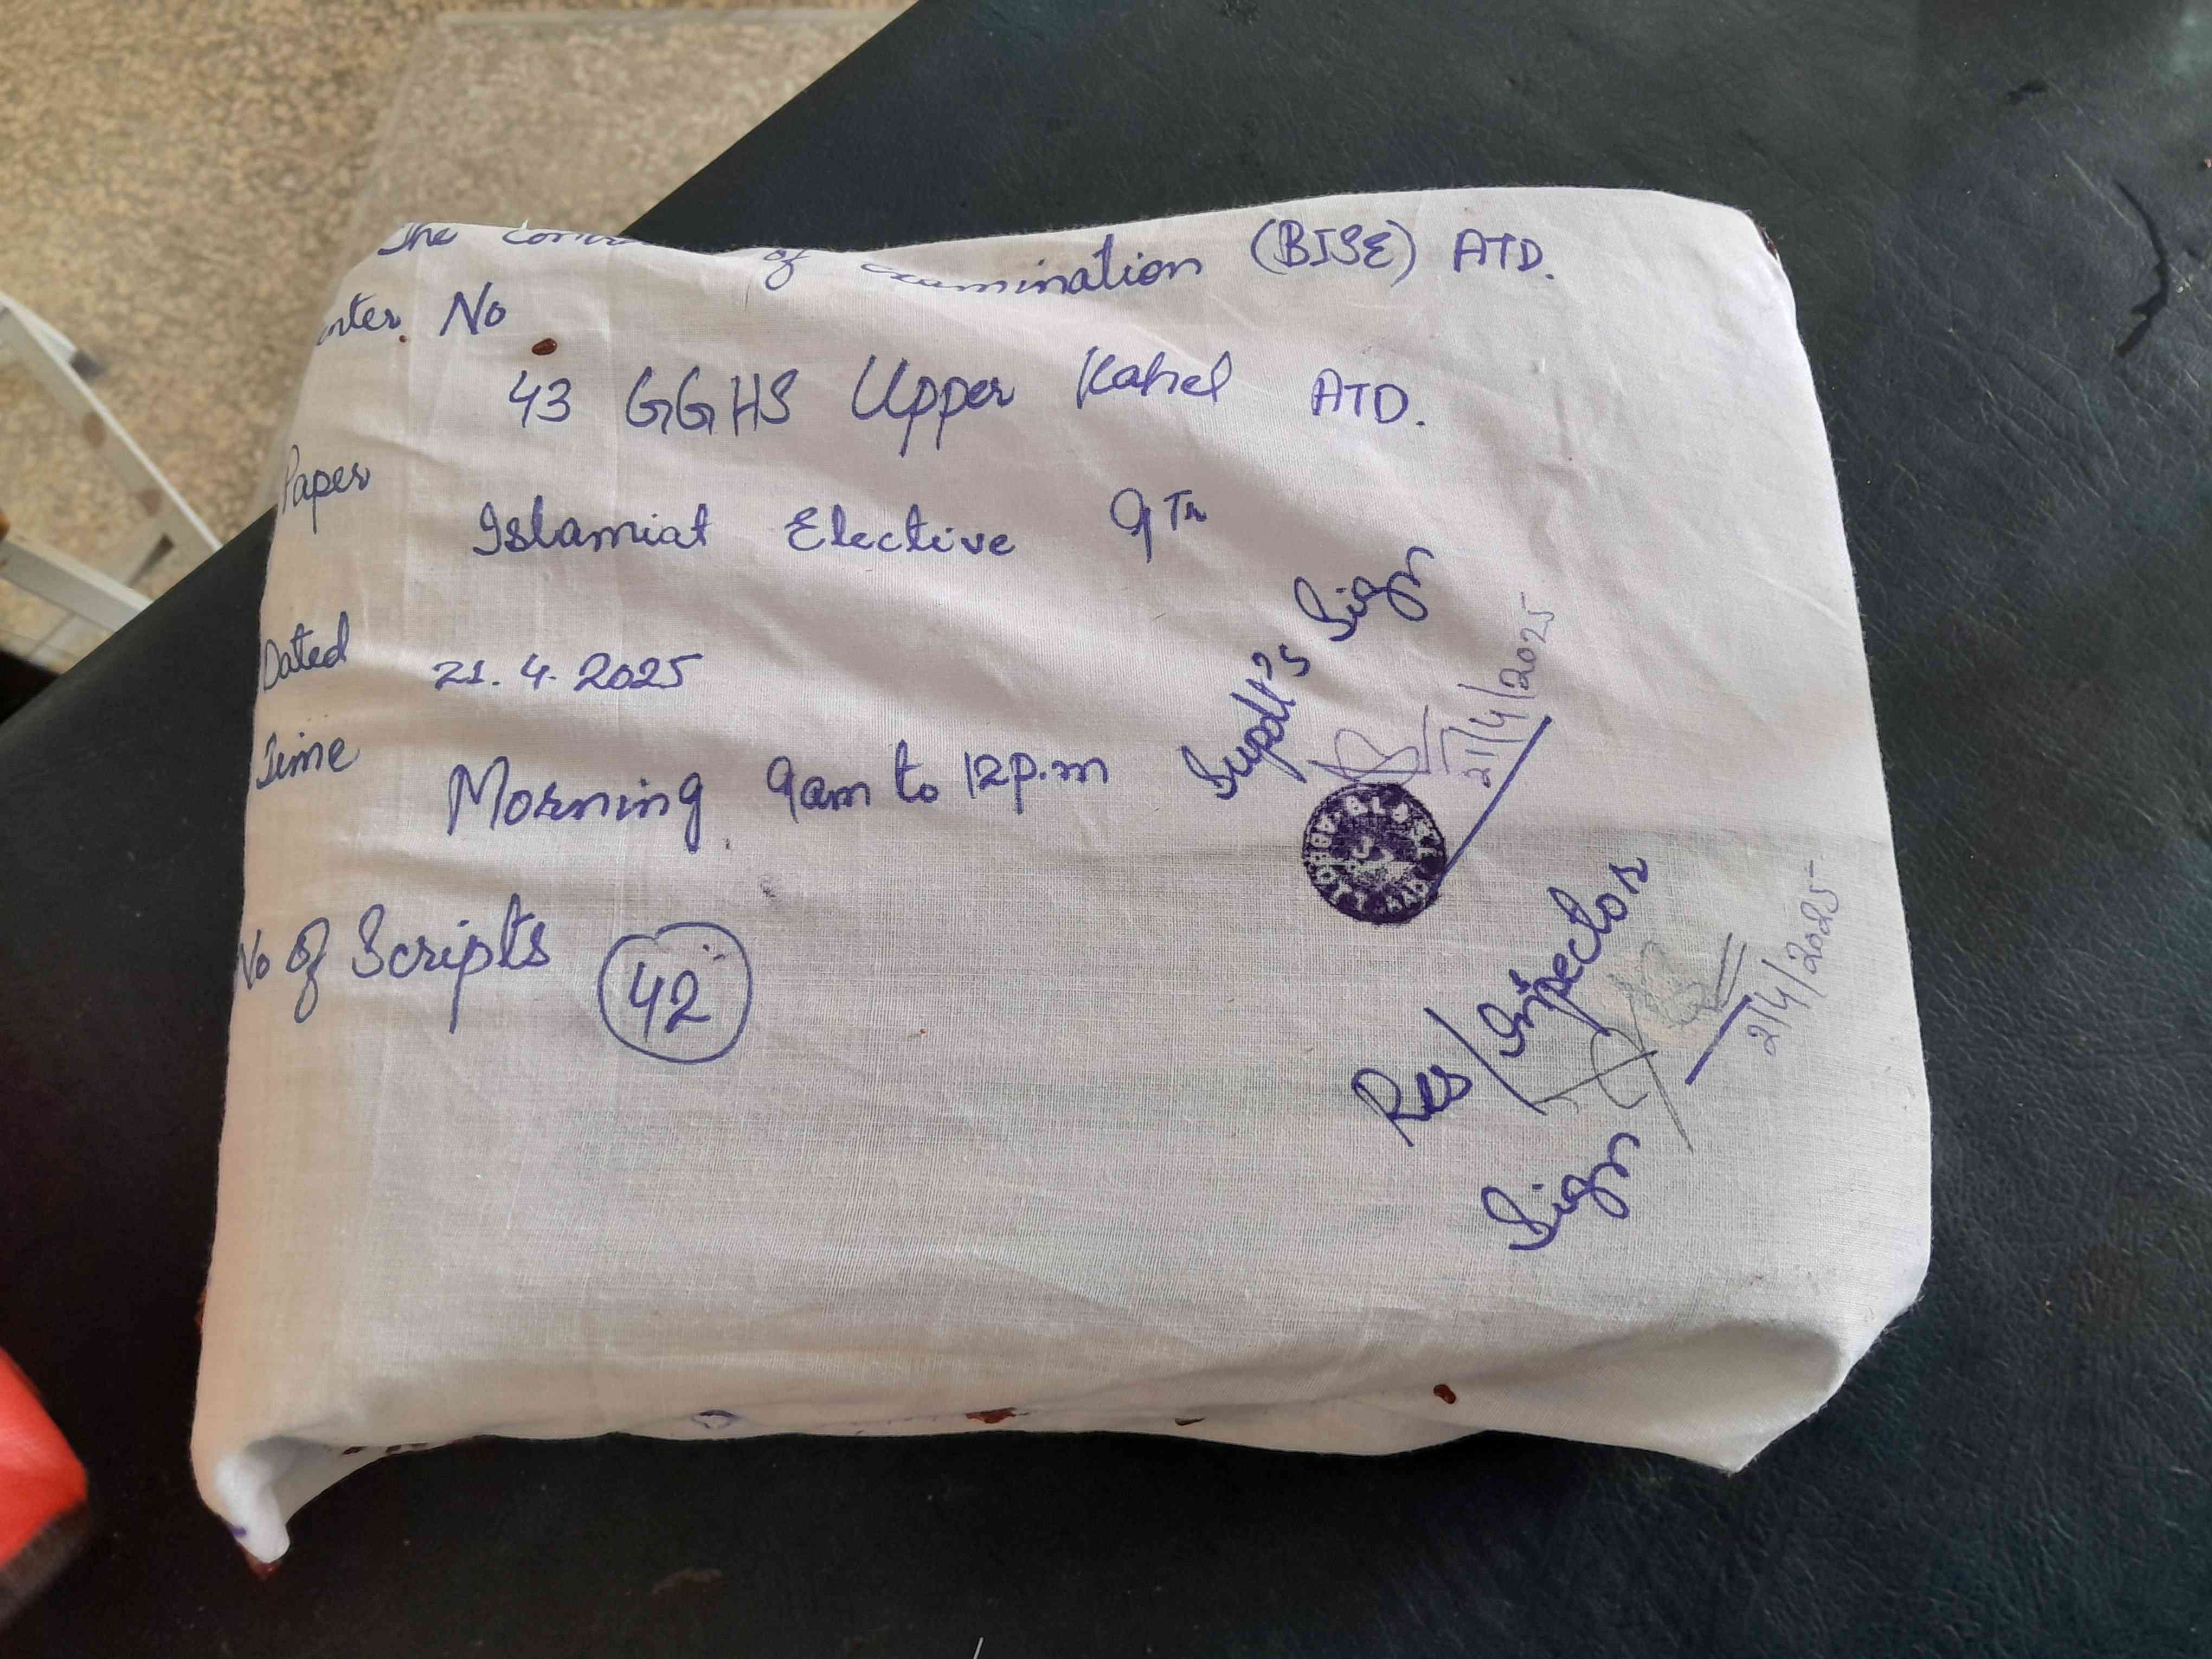 The of Examination (BISE) ATD.
enter No
43 GGHS Upper Kahel ATD.
Paper
Islamiat Elective 9Th
Dated 21.4.2025
Time
Morning 9am to 12p.m
No of Scripts 42
Supdt's Sign
21/4/2025
Res/Inspector
Sign
21/4/2025